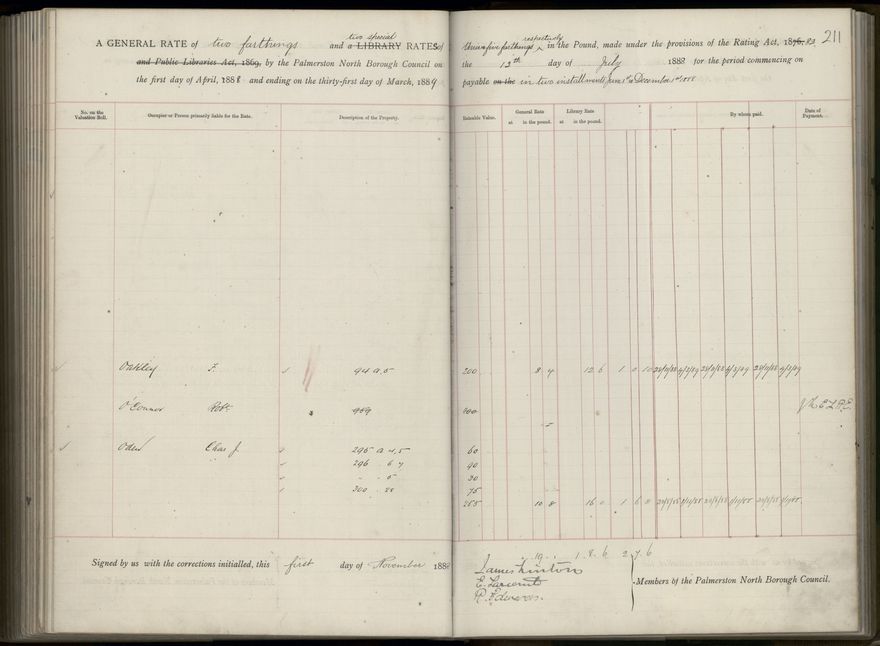 211
A GENERAL RATE of two farthings and a two special LIBRARY RATES of
and Public Libraries Act, 1869, by the Palmerston North Borough Council on
the first day of April, 1888 and ending on the thirty-first day of March, 1889
five farthings respectively in the Pound, made under the provisions of the Rating Act, 1876. 82
the 13th day of July 1888 for the period commencing on
payable on the in two installments June 1st & December 1st 1888
No. on the Valuation Roll.
Occupier or Person primarily liable for the Rate.
Description of the Property.
Rateable Value.
General Rate at in the pound.
Library Rate at in the pound.
By whom paid.
Date of Payment.
Oakley F. 94 a. 5 200 8 4 12 6 1 0 10
O'Connor Robt. 959
Oden Chas J. 295 a 4,5 60
296 . 6 7 90
" . 5 30
300 . 28 75
255 10 8 16 0 1 6 8
19 . . 1. 8. 6 2 7. 6
Signed by us with the corrections initialled, this first day of November 1888
James Linton
E. Larcomb
R. Edwards.
Members of the Palmerston North Borough Council.